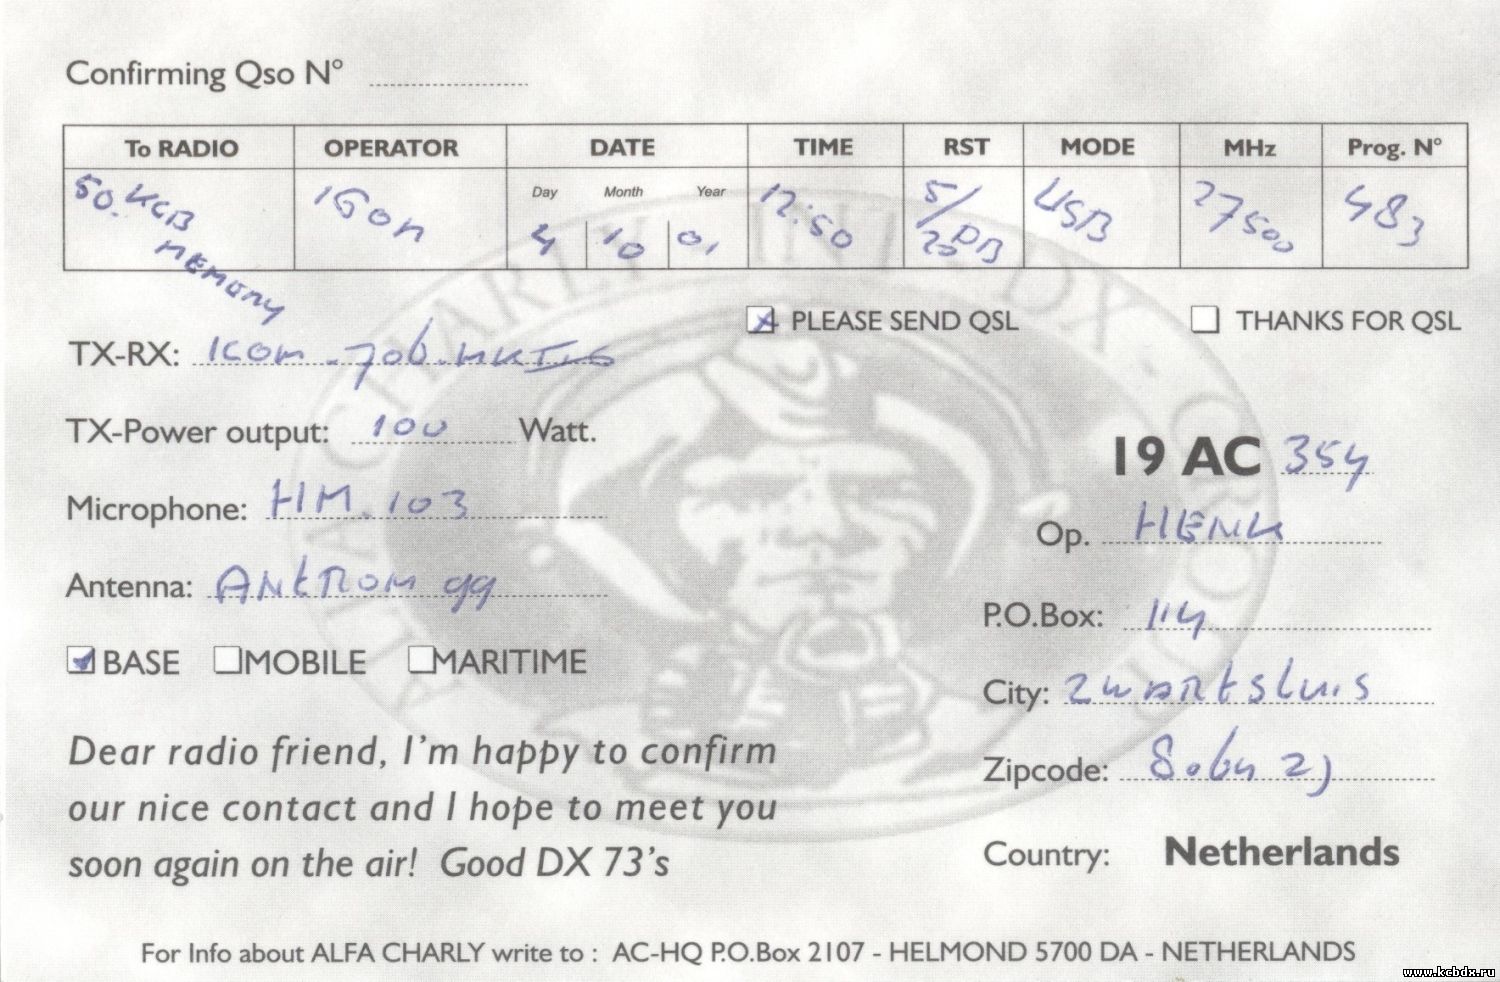 Confirming Qso N°
To RADIO OPERATOR DATE TIME RST MODE MHz Prog. N°
Day Month Year
50. KCB IGon 4 10 01 12:50 5/20 DB USB 27500 483
MEMORY
PLEASE SEND QSL THANKS FOR QSL
TX-RX: ICOM - 706. MK
TX-Power output: 100 Watt.
19 AC 354
Microphone: HM. 103
Op. HENK
Antenna: ANTRON 99
P.O.Box: 114
BASE MOBILE MARITIME
City: ZWARTSLUIS
Dear radio friend, I'm happy to confirm
our nice contact and I hope to meet you
soon again on the air! Good DX 73's
Zipcode:
Country: Netherlands
ALFA CHARLY INT. DX-GROUP
For Info about ALFA CHARLY write to : AC-HQ P.O.Box 2107 - HELMOND 5700 DA - NETHERLANDS
www.kcbdx.ru